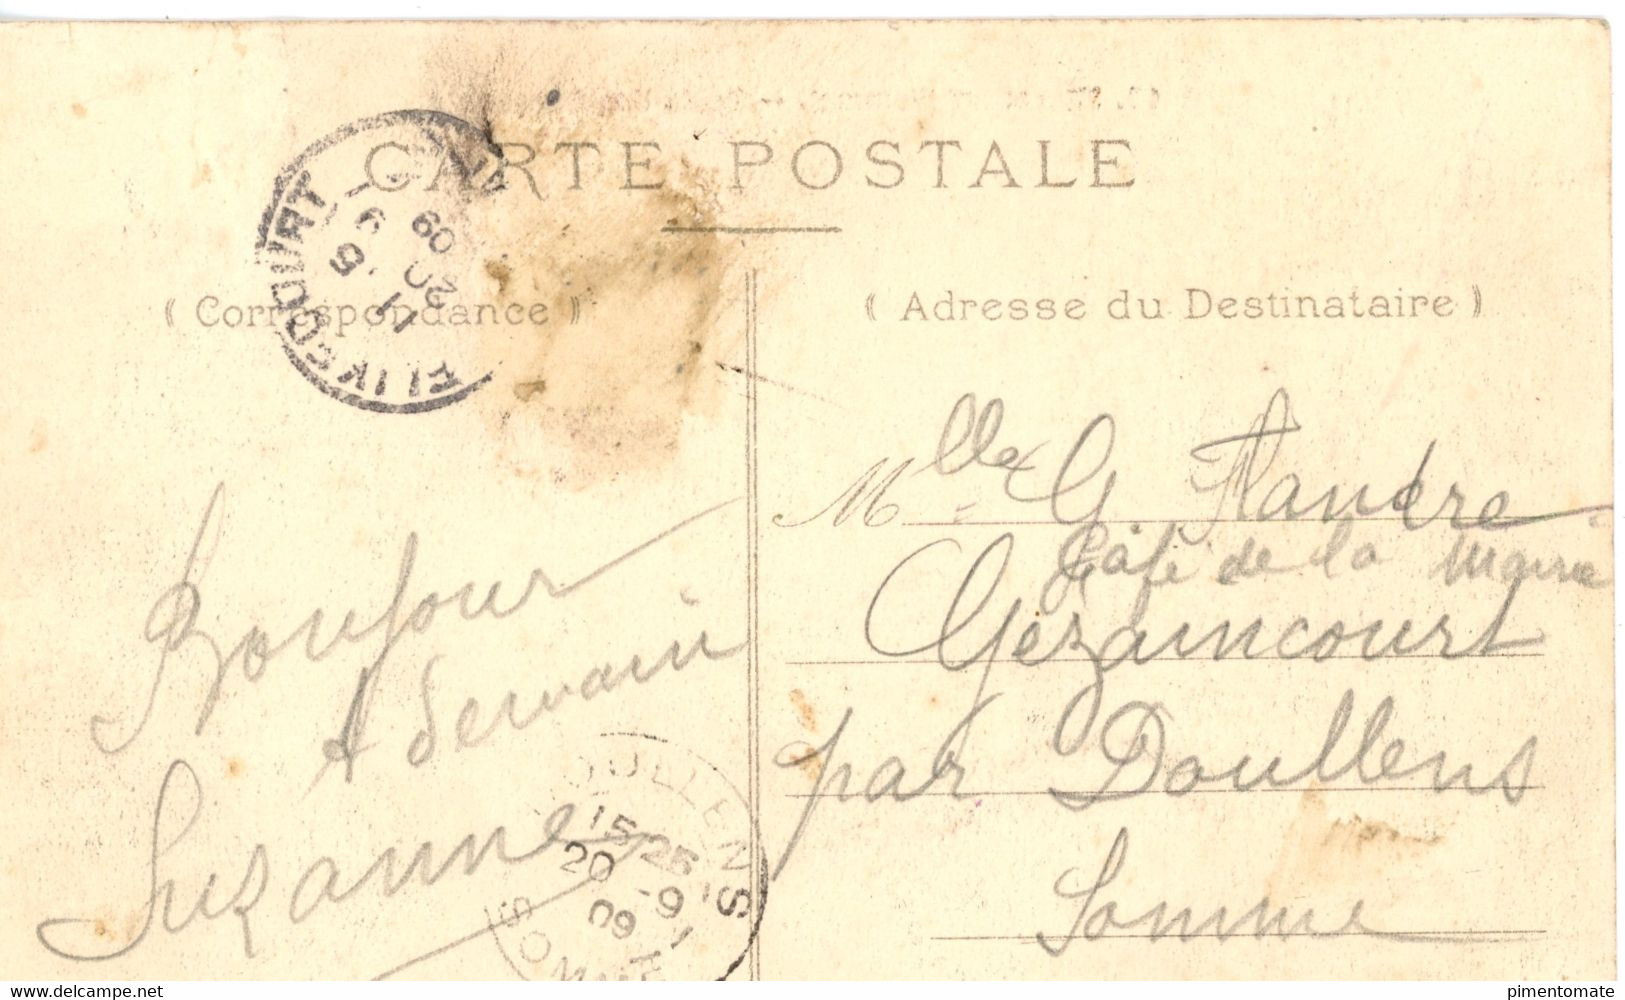 CARTE POSTALE
( Correspondance )
FLIXECOURT
11 15
20 9
09
Bonjour
A demain
Suzanne
DOULLENS
15 25
20 -9
09
SOMME
( Adresse du Destinataire )
Mlle G Flandre
Café de la Mairie
Gézaincourt
par Doullens
Somme
www.delcampe.net
pimentomate